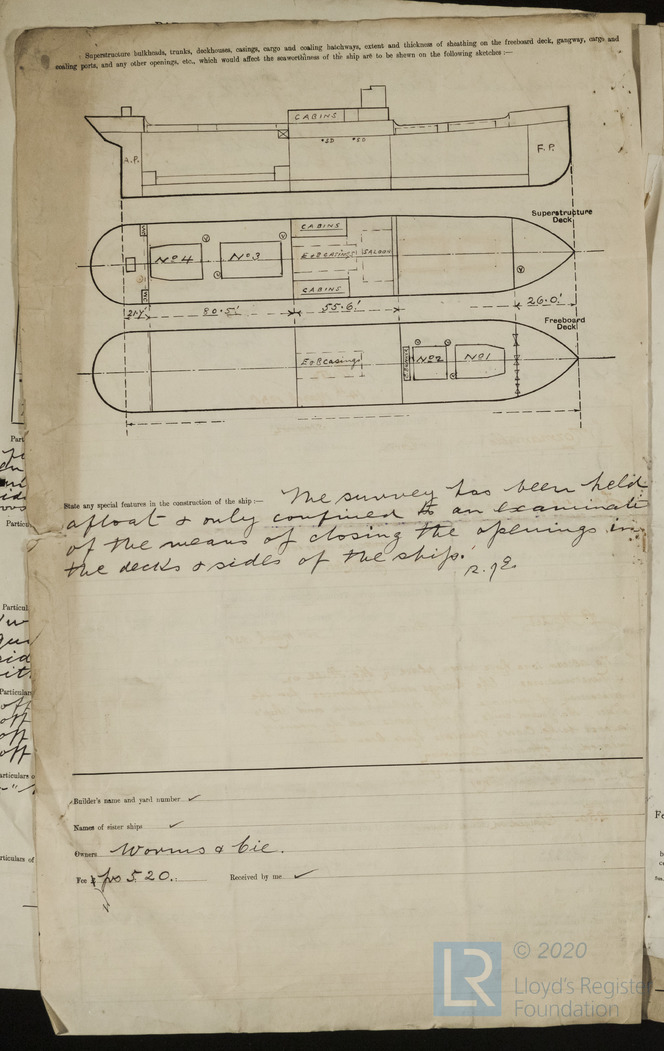 Superstructure bulkheads, trunks, deckhouses, casings, cargo and coaling hatchways, extent and thickness of sheathing on the freeboard deck, gangway, cargo and
coaling ports, and any other openings, etc., which would affect the seaworthiness of the ship are to be shown on the following sketches :—
CABINS
A.P.
F.P.
Superstructure
Deck
CABINS
No 4
No 3
E&B CASINGS
SALOON
CABINS
21.4'
80.5'
55.6'
26.0'
Freeboard
Deck
E&B Casings
No 2
No 1
State any special features in the construction of the ship :— The survey has been held
afloat & only confined to an examinatio
of the means of closing the openings in
the decks & sides of the ship.
Builder's name and yard number ✓
Names of sister ships ✓
Owners Worms & Cie.
Fee £ frs 520.:
Received by me ✓
LR
© 2020
Lloyd's Register
Foundation